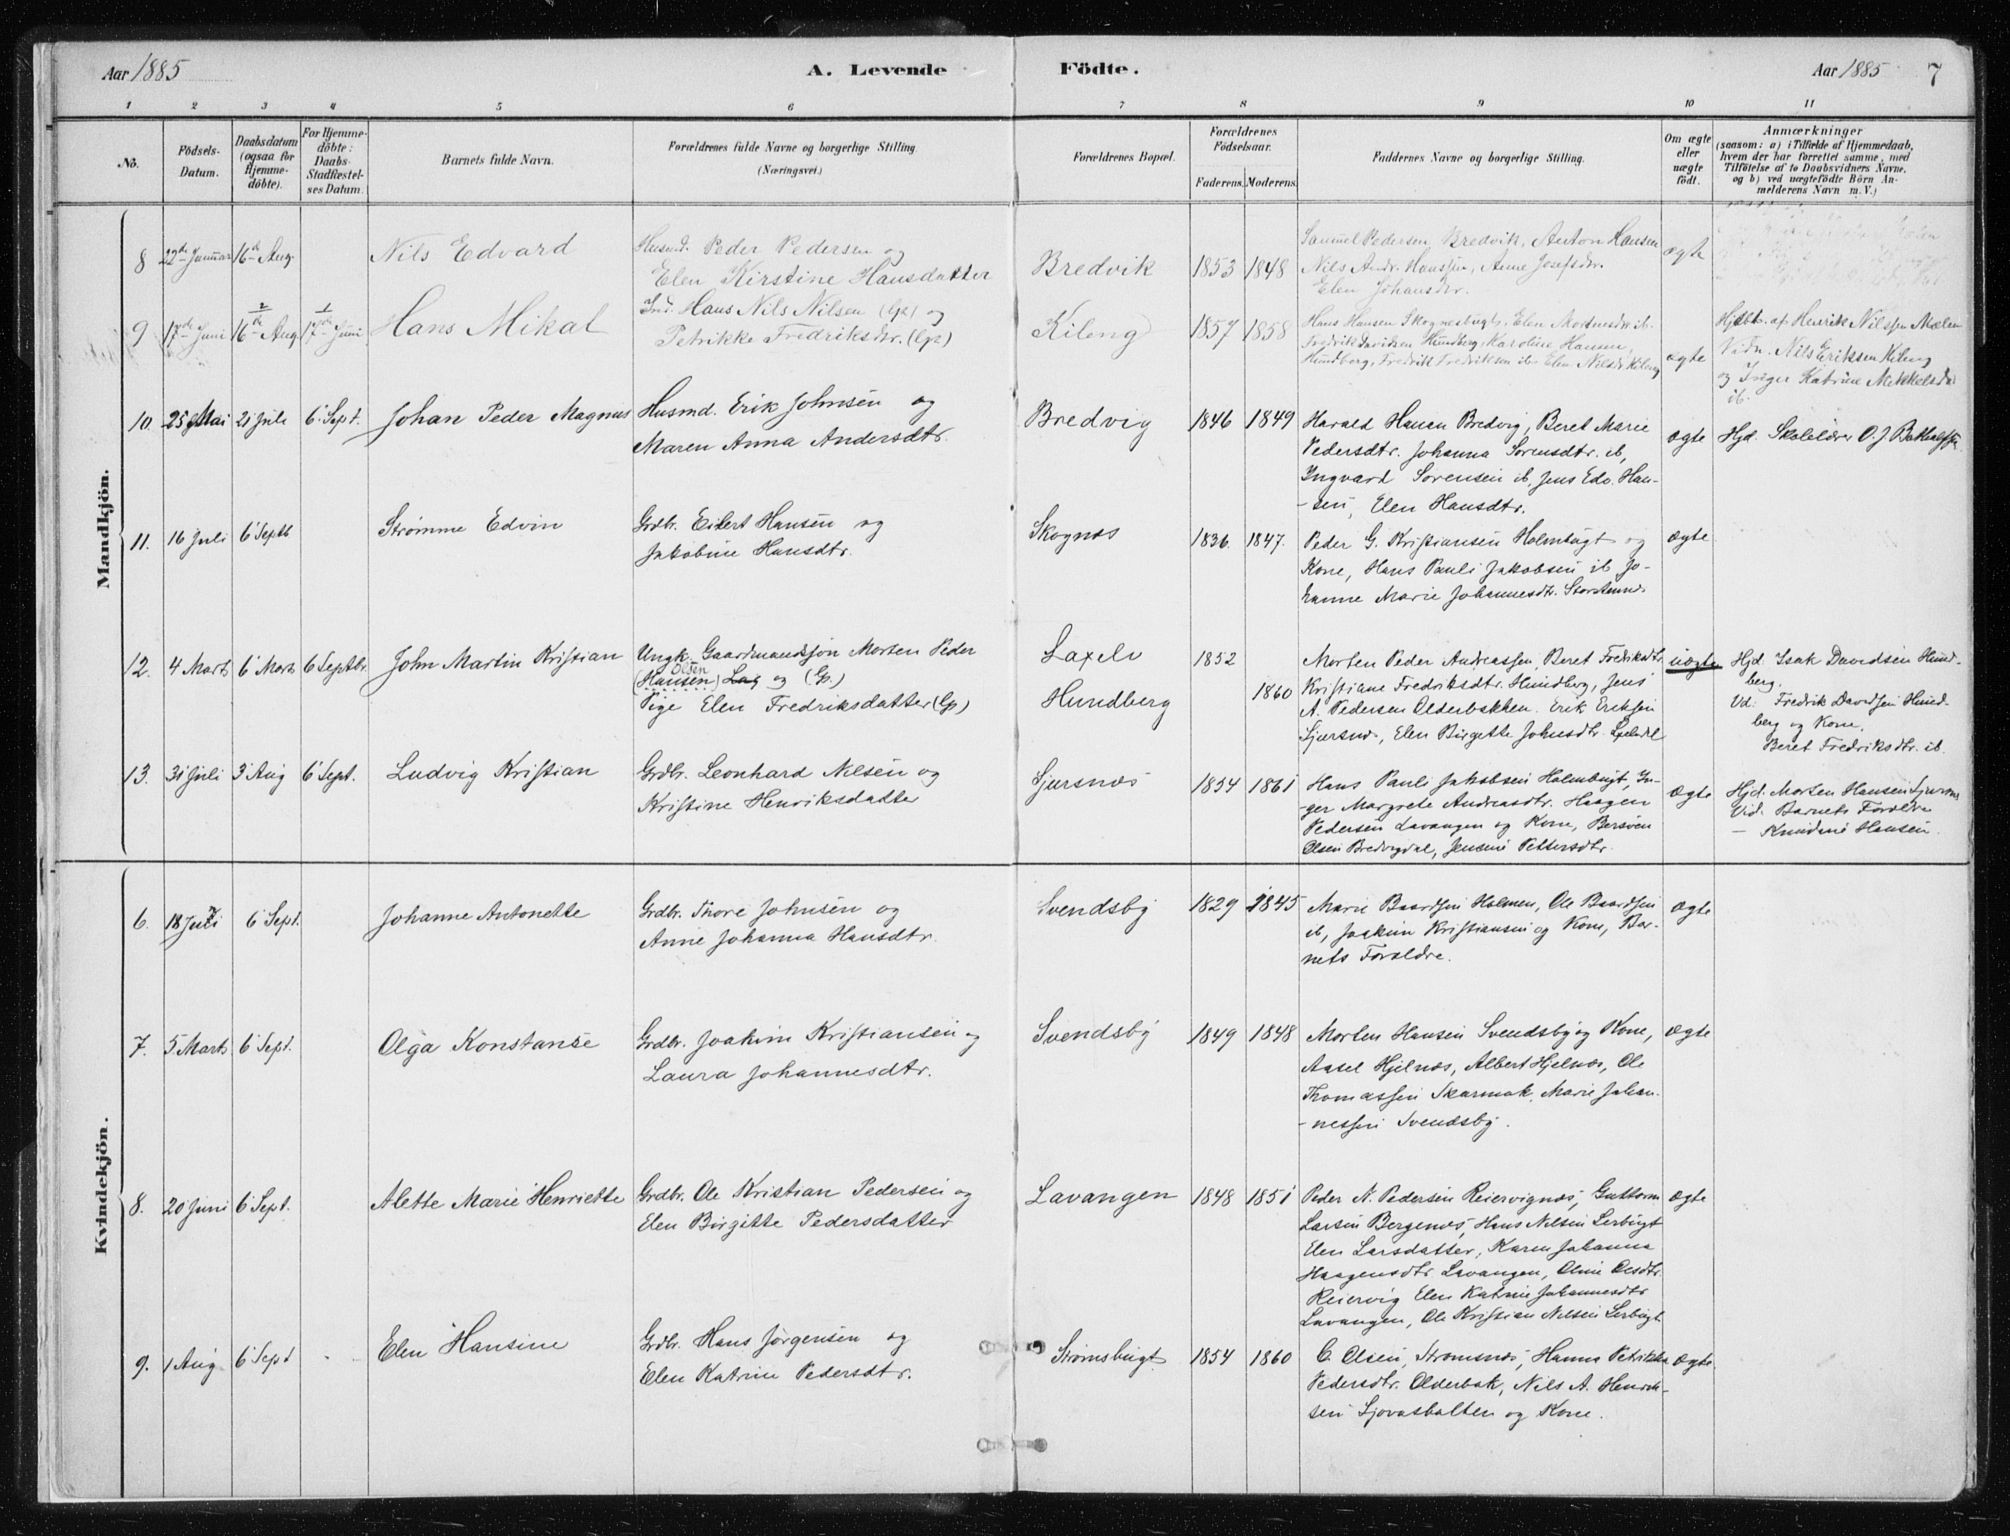 Aar 1885 A. Levende Födte. Aar 1885 7
1 2 3 4 5 6 7 8 9 10 11
No. Födsels-Datum. Daabsdatum (ogsaa for Hjemmedöbte). For Hjemmedöbte: Daabs-Stadfæstelses Datum. Barnets fulde Navn. Forældrenes fulde Navne og borgerlige Stilling. (Næringsvei.) Forældrenes Bopæl. Forældrenes Födselsaar. Faderens. Moderens. Faddernes Navne og borgerlige Stilling. Om ægte eller uægte födt. Anmærkninger (saasom: a) i Tilfælde af Hjemmedaab, hvem der har forrettet samme, med Tilföielse af to Daabsvidners Navne, og b) ved uægtefödte Börn Anmelderens Navn m. V.)
Mandkjön.
8 22de Januar 16de Aug. Nils Edvard Husmd. Peder Pedersen og
Elen Kirstine Hansdatter
Bredvik 1853 1848
Samuel Pedersen Bredvik, Anton Hansen
Nils Andr. Hanssen, Anne Josefsdr.
Elen Johansdr.
ægte
9 17de Juni 2/16de Aug. 1/17de Juni Hans Mikal Ind. Hans Nils Nilsen (lp) og
Petrikke Fredriksdr. (lp)
Kileng 1857 1858
Hans Hansen Skognesbugt, Elen Mortensdr ib.
Fredrik Davidsen Hundberg, Karoline Hansen
Hundberg, Fredrik Fredriksen ib. Elen Nilsdr Kileng
ægte
Hjdbt. af Henrik Nilsen Mælen
Vidn. Nils Eriksen Kileng
og Inger Katrine Mikkelsdr
ib.
10. 25 Mai 21 Juli 6 Sept. Johan Peder Magnus Husmd. Erik Johnsen og
Maren Anna Andersdtr.
Bredvig 1846 1849
Harald Hansen Bredvig, Beret Marie
Pedersdtr. Johanna Sørensdtr. ib,
Ingvard Sørensen ib, Jens Edv. Han-
-sen, Elen Hansdtr.
ægte Hjd. Skolelærer O. J.
11. 16 Juli 6 Septb Strømme Edvin Grdbr. Eilert Hansen og
Jakobine Hansdtr.
Skognæs 1836. 1847.
Peder G. Kristiansen Holmbugt og
Kone, Hans Pauli Jakobsen ib Jo-
hanne Marie Johannesdtr.
ægte
12. 4 Marts 6 Marts 6 Septbr. John Martin Kristian Ungk. Gaardmandsøn Morten Peder
Olsen
(Hansen) Lax og (Lp.)
Pige Elen Fredriksdatter (Lp)
Laxelv 1852
Hundberg 1860
Morten Peder Andreassen, Beret Fredriksdtr
Kristiane Fredriksdtr. Hundberg, Jens
A. Pedersen Olderbakken. Erik Eriksen
Sjursnæs, Elen Birgette Johnsdtr.
uægte
Hjd. Isak Davidsen Hund-
berg.
Vd: Fredrik Davidsen Hund-
berg og Kone,
Beret Fredriksdtr. ib.
13. 31 Juli 3 Aug 6 Sept. Ludvig Kristian Grdbr. Leonhard Nilsen og
Kristine Henriksdatter
Sjursnæs 1854 1861
Hans Pauli Jakobsen Holmbugt, In-
-ger Margrete Andreasdtr. Haagen
Pedersen Lavangen og Kone, Bersven
Olsen Bredvigdal, Jensine Pettersdtr.
ægte
Hjd. Morten Hansen Sjursnæs
Vid. Barnets Forældre
– Hansen.
Kvindekjön.
6. 18 Juli 6 Sept. Johanne Antonette Grdbr. Thore Johnsen og
Anne Johanna Hansdtr.
Svendsby 1829 1845
Marie Baardsen Holmen, Ole Baardsen
ib, Joakim Kristiansen og Kone, Bar-
nets Forældre.
ægte
7. 5 Marts 6 Sept. Olga Konstanse Grdbr. Joakim Kristiansen og
Laura Johannesdtr.
Svendsby 1849 1848
Morten Hansen Svendsby og Kone,
Axsel Hjelnæs, Albert Hjelnæs, Ole
Thomassen Skarmok, Marie Johan-
-nessen Svendsby.
ægte
8. 20 Juni 6 Sept. Alette Marie Henriette Grdbr. Ole Kristian Pedersen og
Elen Birgitte Pedersdatter
Lavangen 1848 1851
Peder N. Pedersen Reiervignæs, Guttorm
Larsen Bergenæs, Hans Nilsen Lerbugt
Elen Larsdatter, Karen Johanna
Haagensdtr Lavangen, Oline Olsdtr.
Reiervig Elen Katrine Johannesdtr
Lavangen, Ole Kristian Nilsen Lerbugt
ægte
9. 1 Aug 6 Sept Elen Hansine Grdbr. Hans Jørgensen og
Elen Katrine Pedersdtr.
Strømsbugt 1854 1860
C. Olsen, Strømsnæs, Hanna Petrikka
Pedersdtr. Olderbak, Nils A. Henrik-
sen og Kone.
ægte